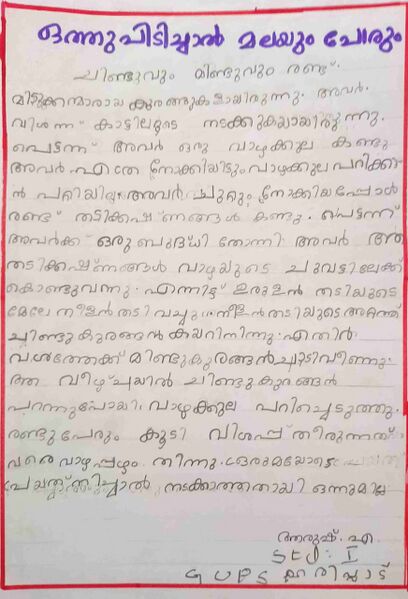 ഒത്തുപിടിച്ചാൽ മലയും പോരും
ചിണ്ടുവും മിണ്ടുവും രണ്ട്.
മിടുക്കന്മാരായ കുരങ്ങുകളായിരുന്നു. അവർ.
വിശന്ന് കാട്ടിലൂടെ നടക്കുകയായിരുന്നു.
പെട്ടന്ന് അവർ ഒരു വാഴക്കുല കണ്ടു
അവർ എത്ര നോക്കിയിട്ടും വാഴക്കുല പറിക്കാ
ൻ പറ്റിയില്ല അവർ ചുറ്റും നോക്കിയപ്പോൾ
രണ്ട് തടിക്കഷ്ണങ്ങൾ കണ്ടു. പെട്ടന്ന്
അവർക്ക് ഒരു ബുദ്ധി തോന്നി അവർ ആ
തടിക്കഷ്ണങ്ങൾ വാഴയുടെ ചുവട്ടിലേക്ക്
കൊണ്ടുവന്നു. എന്നിട്ട് ഉരുളൻ തടിയുടെ
മേലേ നീളൻ തടി വച്ചു നീളൻ തടിയുടെ അറ്റത്ത്
ചിണ്ടു കുരങ്ങൻ കയറി നിന്നു. എതിർ
വശത്തേക്ക് മിണ്ടുകുരങ്ങൻ ചാടി വീണു.
ആ വീഴ്ചയിൽ ചിണ്ടു കുരങ്ങൻ
പറന്നുപോയി. വാഴക്കുല പറിച്ചെടുത്തു.
രണ്ടു പേരും കൂടി വിശപ്പ് തീരുന്നത്
വരെ വാഴപ്പഴം തിന്നു. ഒരുമയോടെ
നടക്കാത്തതായി ഒന്നുമില്ല
ആരുഷ്. എ.
STD: I
GUPS ഹരിപ്പാട്